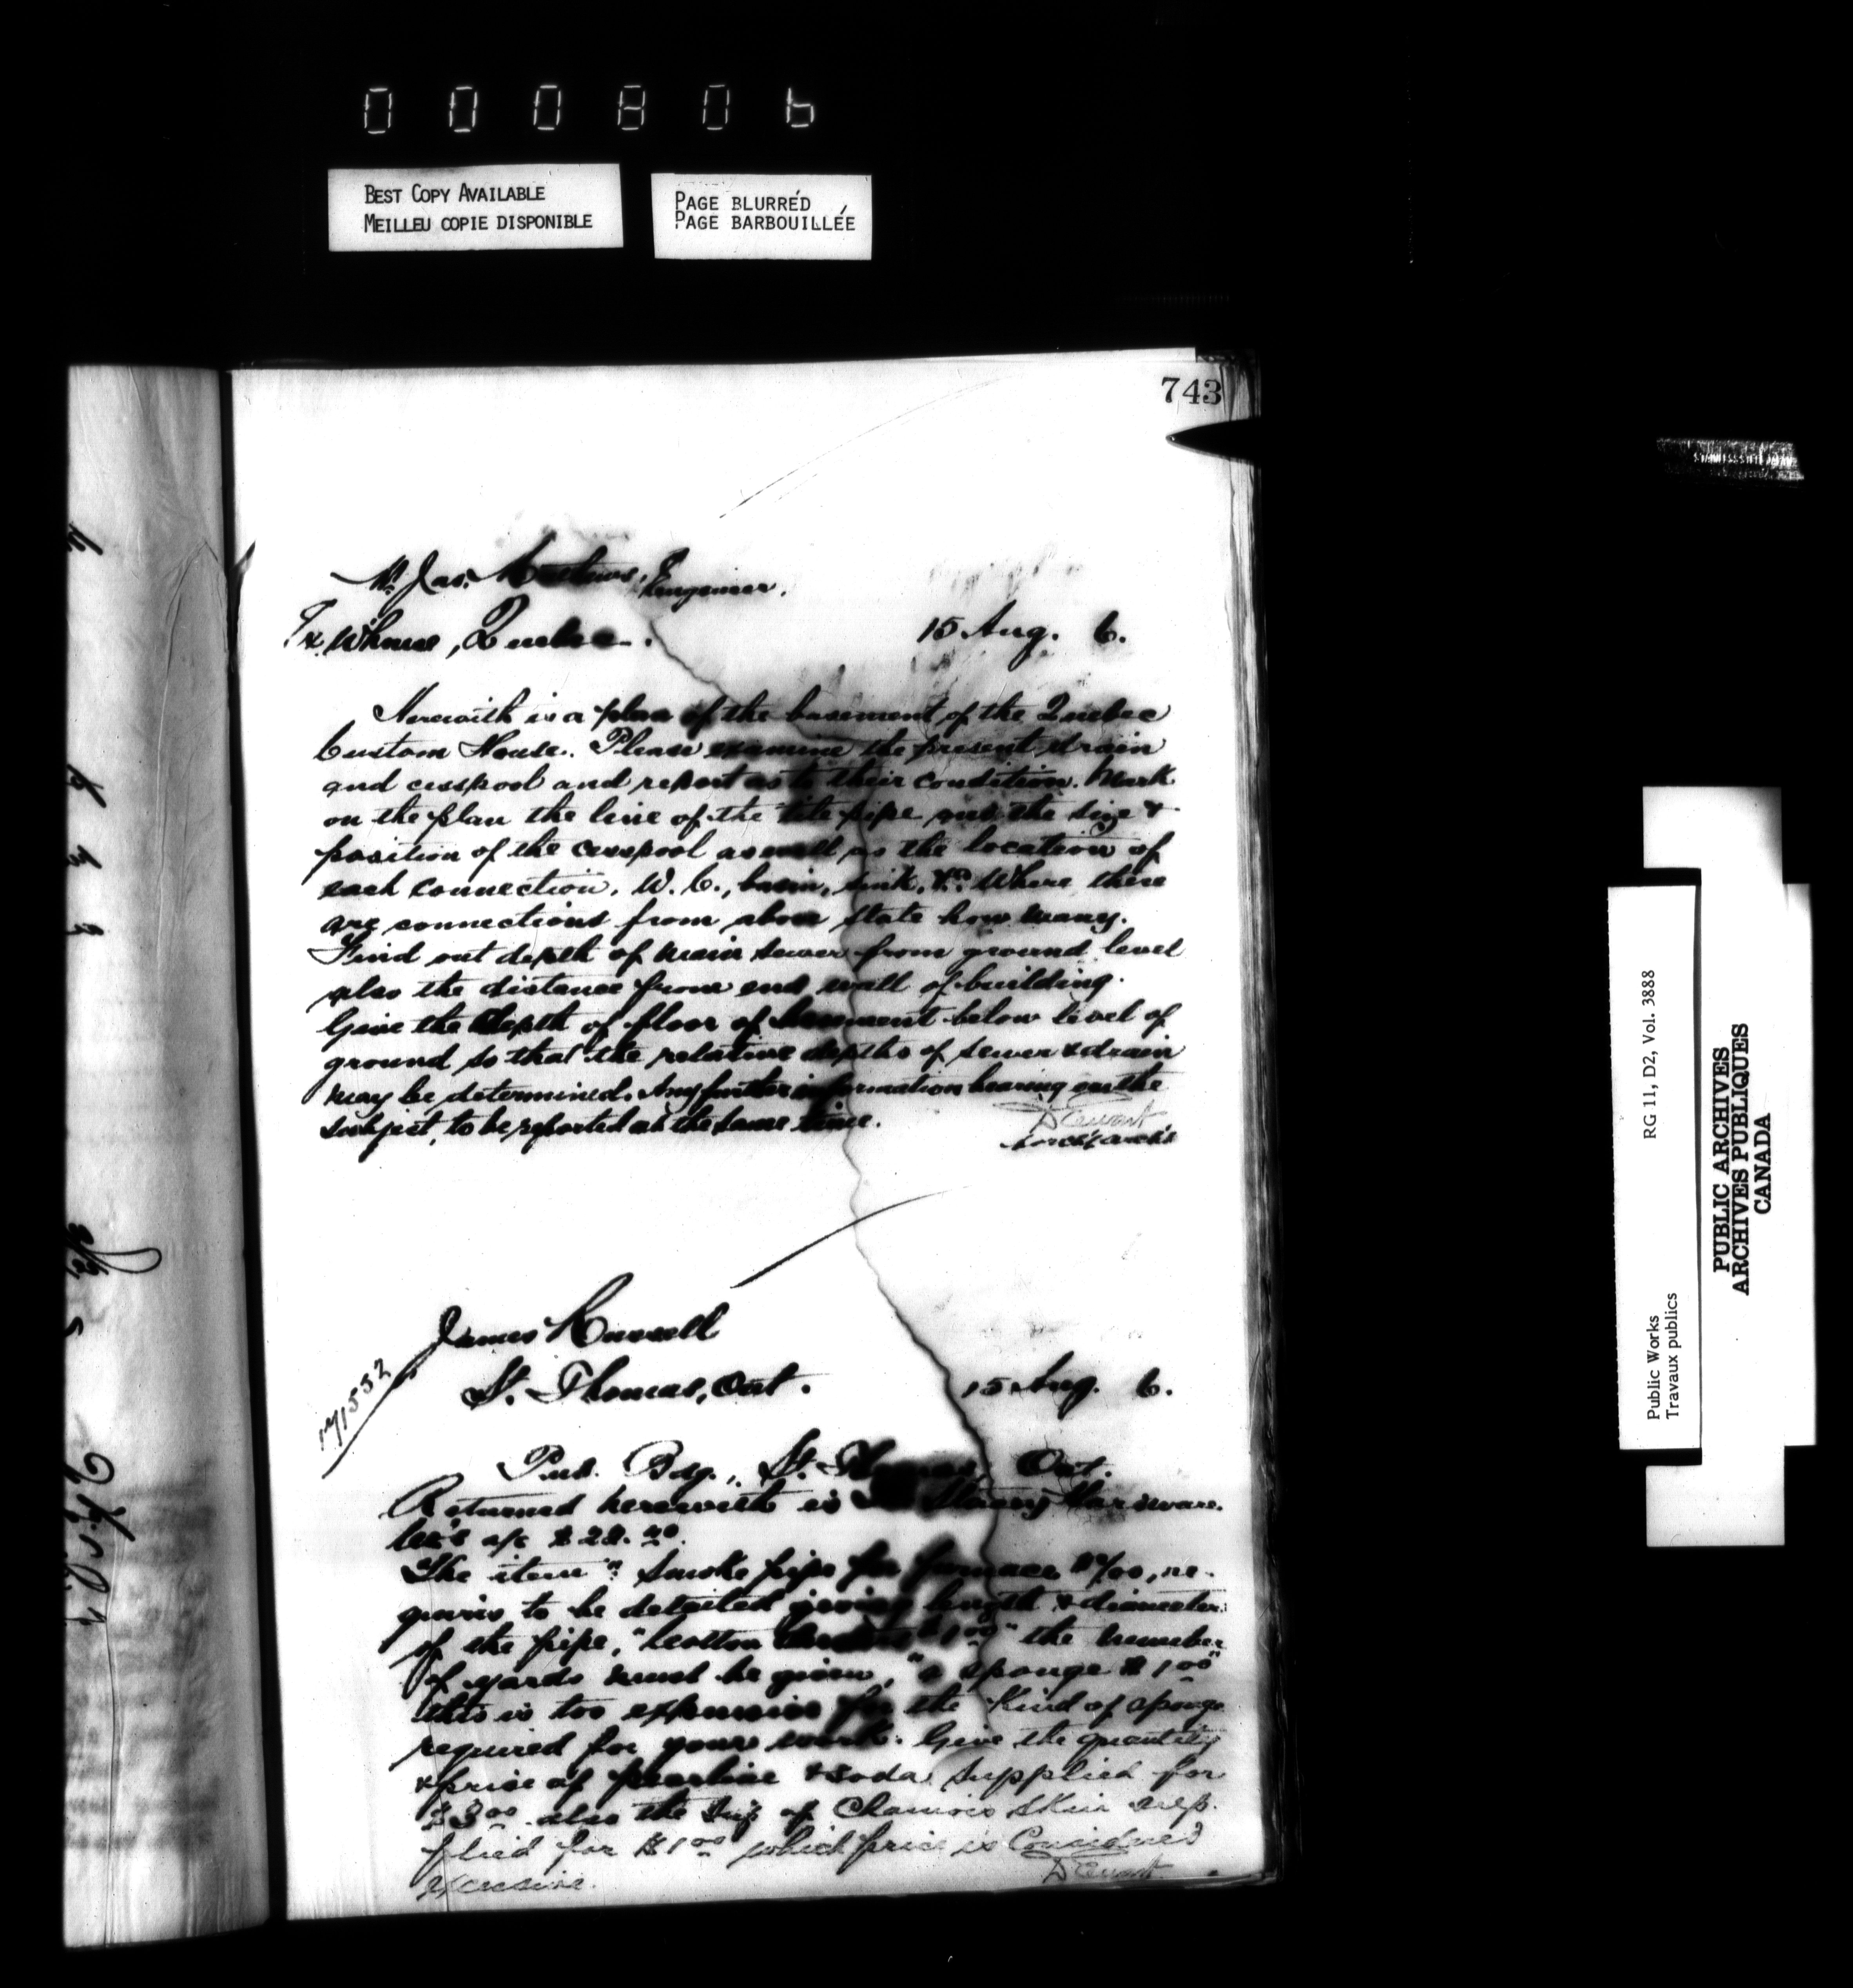 000806
BEST COPY AVAILABLE
MEILLEU COPIE DISPONIBLE
PAGE BLURRED
PAGE BARBOUILLÉE
743
Mr Jas. Engineer,
Ex. Whouse, Quebec.
15 Aug. 6.
Herewith is a plan of the basement of the Quebec
Custom House. Please examine the present drain
and cesspool and report as to their condition. Mark
on the plan the line of the tile pipe and the size &
position of the cesspool as well as the location of
each connection, W. C., basin, sink, &c. Where there
are connections from above state how many.
Find out depth of main sewer from ground level
also the distance from end wall of building.
Give the depth of floor of basement below level of
ground so that the relative depths of sewer & drain
may be determined. Any further information bearing on the
subject, to be reported at the same time.
D Ewart
James Russell
St. Thomas, Ont.
15 Aug. 6.
171532
Pub. Bdg., St. Thomas, Ont.
Returned herewith is Hardware
Co's a/c
The item "Smoke pipe for furnace re-
quires to be detailed giving length & diameter
of the pipe, "Cotton the number
of yards must be given, "a sponge $1.00"
this is too expensive for the kind of sponge
required for your work. Give the quantity
& price of pearline & soda supplied for
$3.00 also the size of Chamois skin sup-
plied for $1.00 which price is Considered
excessive.
D Ewart
Public Works
Travaux publics
RG 11, D2, Vol. 3888
PUBLIC ARCHIVES
ARCHIVES PUBLIQUES
CANADA